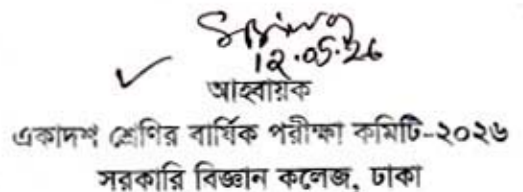 12.05.26
আহবায়ক
একাদশ শ্রেণির বার্ষিক পরীক্ষা কমিটি-২০২৬
সরকারি বিজ্ঞান কলেজ, ঢাকা